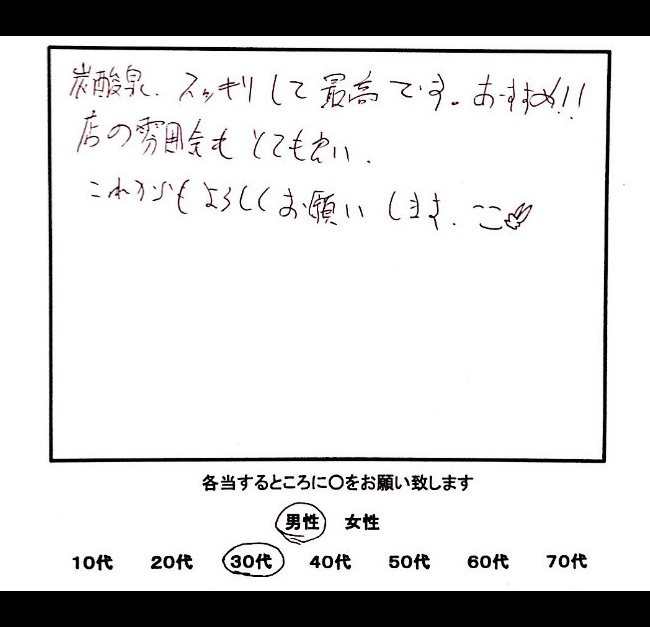 炭酸泉、スッキリして最高です。おすすめ!!
店の雰囲気もとても良い.
これからもよろしくお願いします.
各当するところに〇をお願い致します
男性 女性
10代 20代 30代 40代 50代 60代 70代